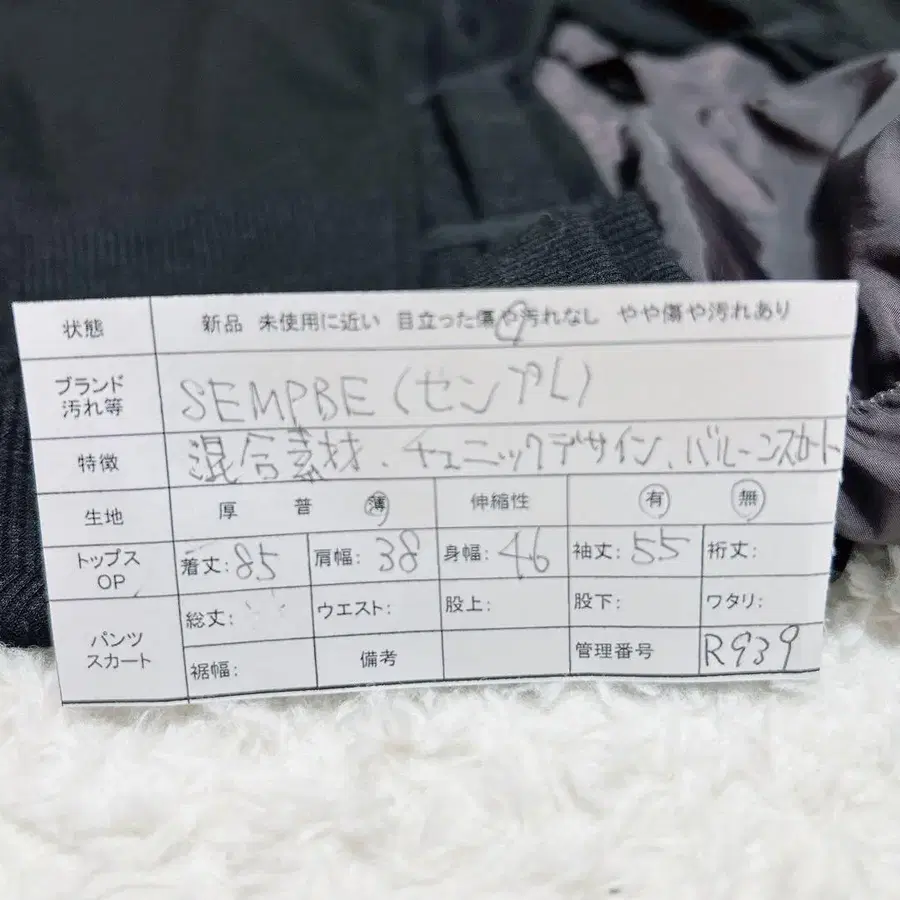 状態 新品 未使用に近い 目立った傷や汚れなし やや傷や汚れあり
ブランド
汚れ等 SEMPBE(センプレ)
特徴 混合素材、チュニックデザイン、バルーンスカート
生地 厚 普 薄 伸縮性 有 無
トップス
OP 着丈:85 肩幅:38 身幅:46 袖丈:55 裄丈:
パンツ
スカート 総丈: ウエスト: 股上: 股下: ワタリ:
裾幅: 備考 管理番号 R939